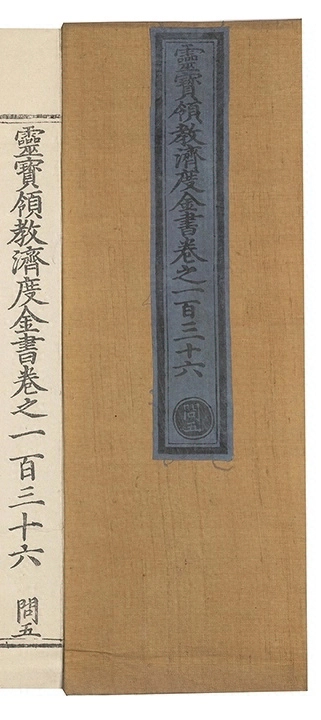 靈寶領教濟度金書卷之一百三十六
問五
靈寶領教濟度金書卷之一百三十六 問五